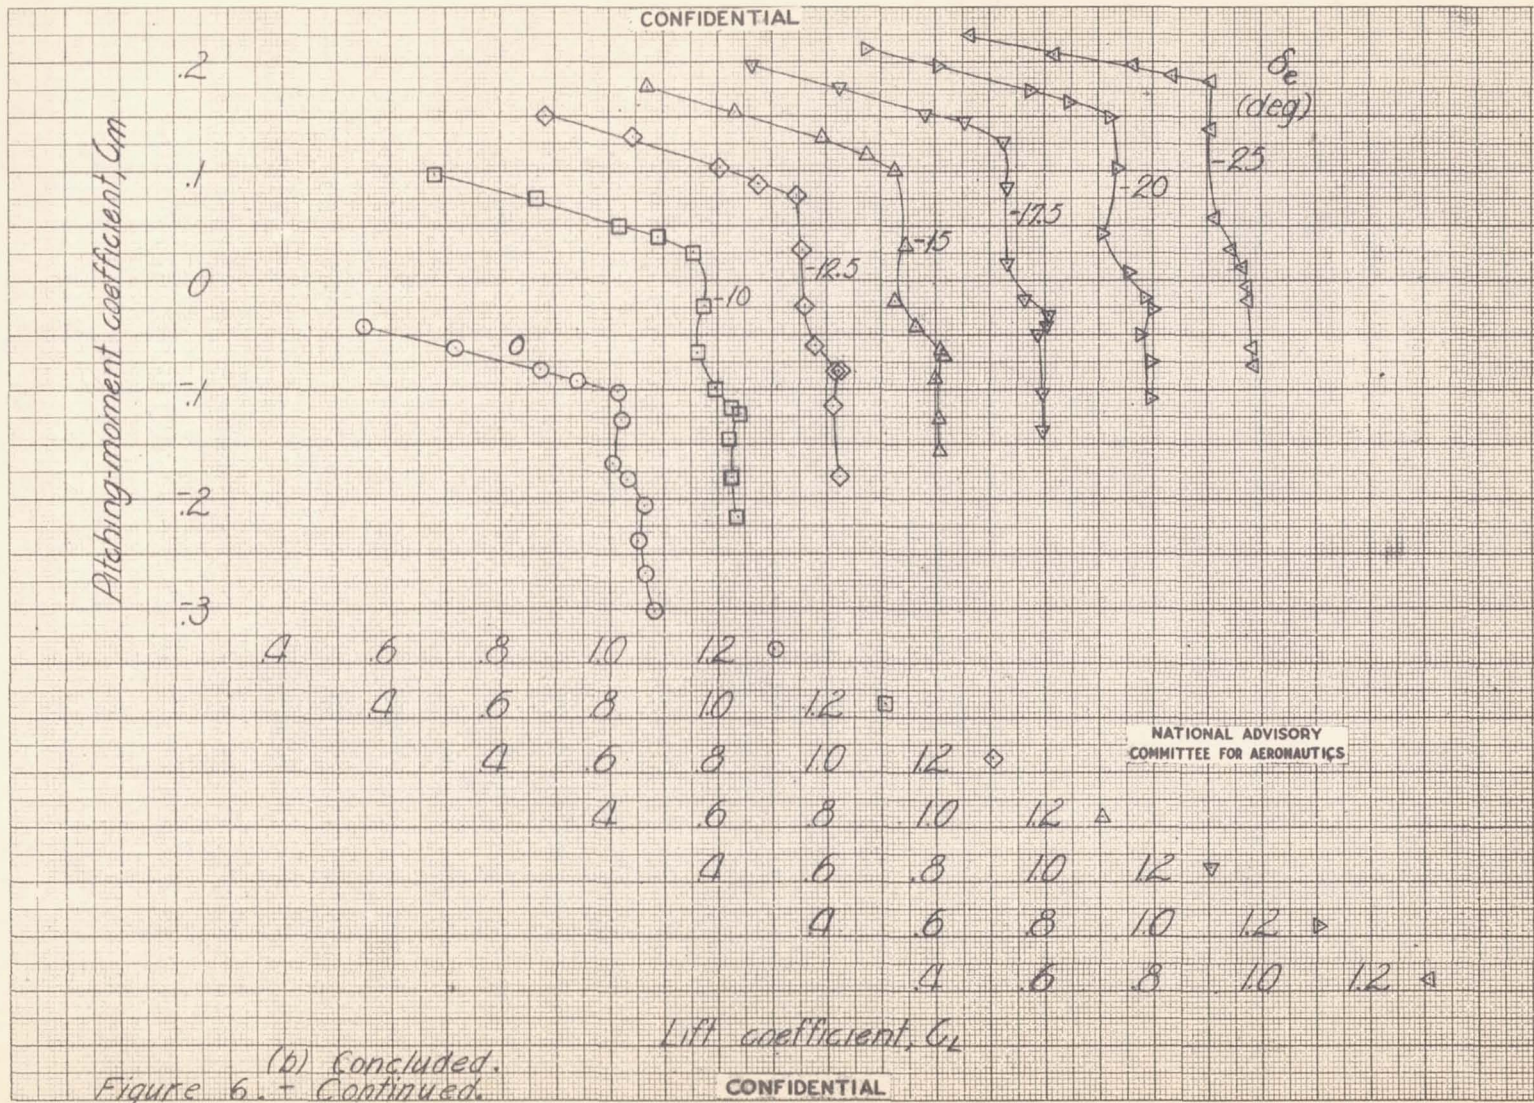 CONFIDENTIAL
.2
.1
0
-.1
-.2
-.3
Pitching-moment coefficient, Cm
δe
(deg)
-25
-20
-17.5
-15
-12.5
-10
0
.4 .6 .8 1.0 1.2
.4 .6 .8 1.0 1.2
.4 .6 .8 1.0 1.2
.4 .6 .8 1.0 1.2
.4 .6 .8 1.0 1.2
.4 .6 .8 1.0 1.2
.4 .6 .8 1.0 1.2
NATIONAL ADVISORY
COMMITTEE FOR AERONAUTICS
Lift coefficient, CL
(b) Concluded.
Figure 6. - Continued.
CONFIDENTIAL